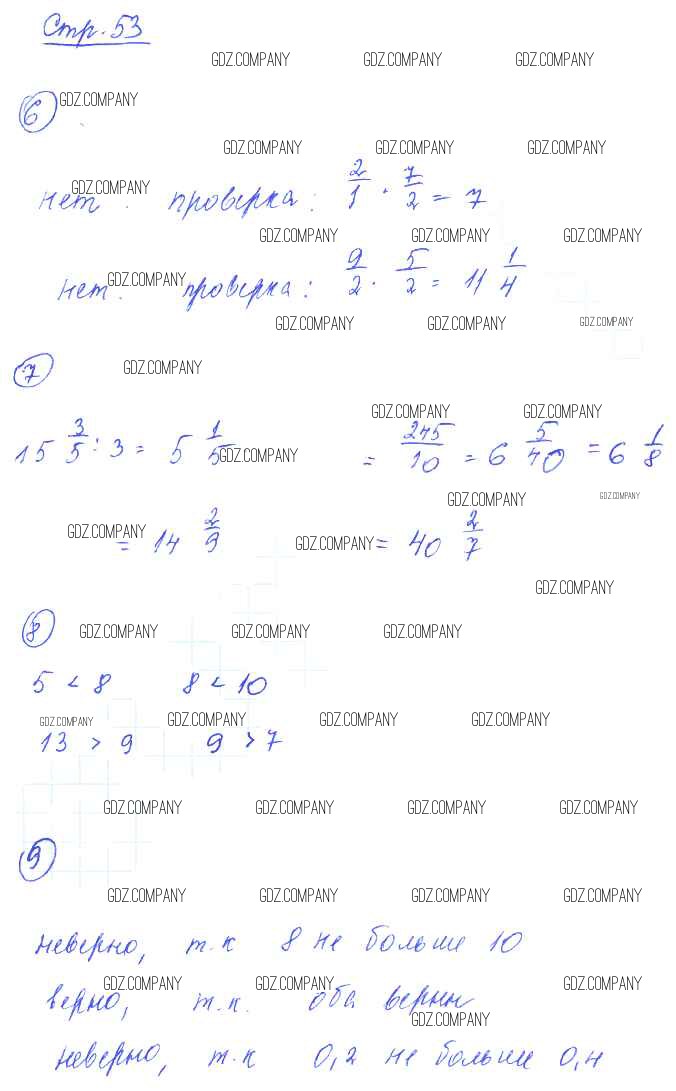 Стр. 53
GDZ.COMPANY GDZ.COMPANY GDZ.COMPANY
6 GDZ.COMPANY
GDZ.COMPANY GDZ.COMPANY GDZ.COMPANY
GDZ.COMPANY
нет. проверка: 2/1 · 7/2 = 7
GDZ.COMPANY GDZ.COMPANY GDZ.COMPANY
GDZ.COMPANY
нет. проверка: 9/2 · 5/2 = 11 1/4
GDZ.COMPANY GDZ.COMPANY GDZ.COMPANY
7 GDZ.COMPANY
GDZ.COMPANY GDZ.COMPANY
15 3/5 : 3 = 5 1/5 GDZ.COMPANY = 245/10 = 6 5/40 = 6 1/8
GDZ.COMPANY GDZ.COMPANY
GDZ.COMPANY = 14 2/9 GDZ.COMPANY = 40 2/7
GDZ.COMPANY
8 GDZ.COMPANY GDZ.COMPANY GDZ.COMPANY
5 < 8 8 < 10
GDZ.COMPANY GDZ.COMPANY GDZ.COMPANY GDZ.COMPANY
13 > 9 9 > 7
GDZ.COMPANY GDZ.COMPANY GDZ.COMPANY GDZ.COMPANY
9
GDZ.COMPANY GDZ.COMPANY GDZ.COMPANY GDZ.COMPANY
неверно, т.к 8 не больше 10
GDZ.COMPANY GDZ.COMPANY GDZ.COMPANY
верно, т.к. оба верны
GDZ.COMPANY
неверно, т.к 0,2 не больше 0,4